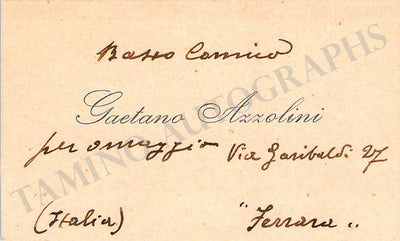 Basso Comico
Gaetano Azzolini
per omaggio Via Garibaldi 27
(Italia) "Ferrara"
TAMINO AUTOGRAPHS